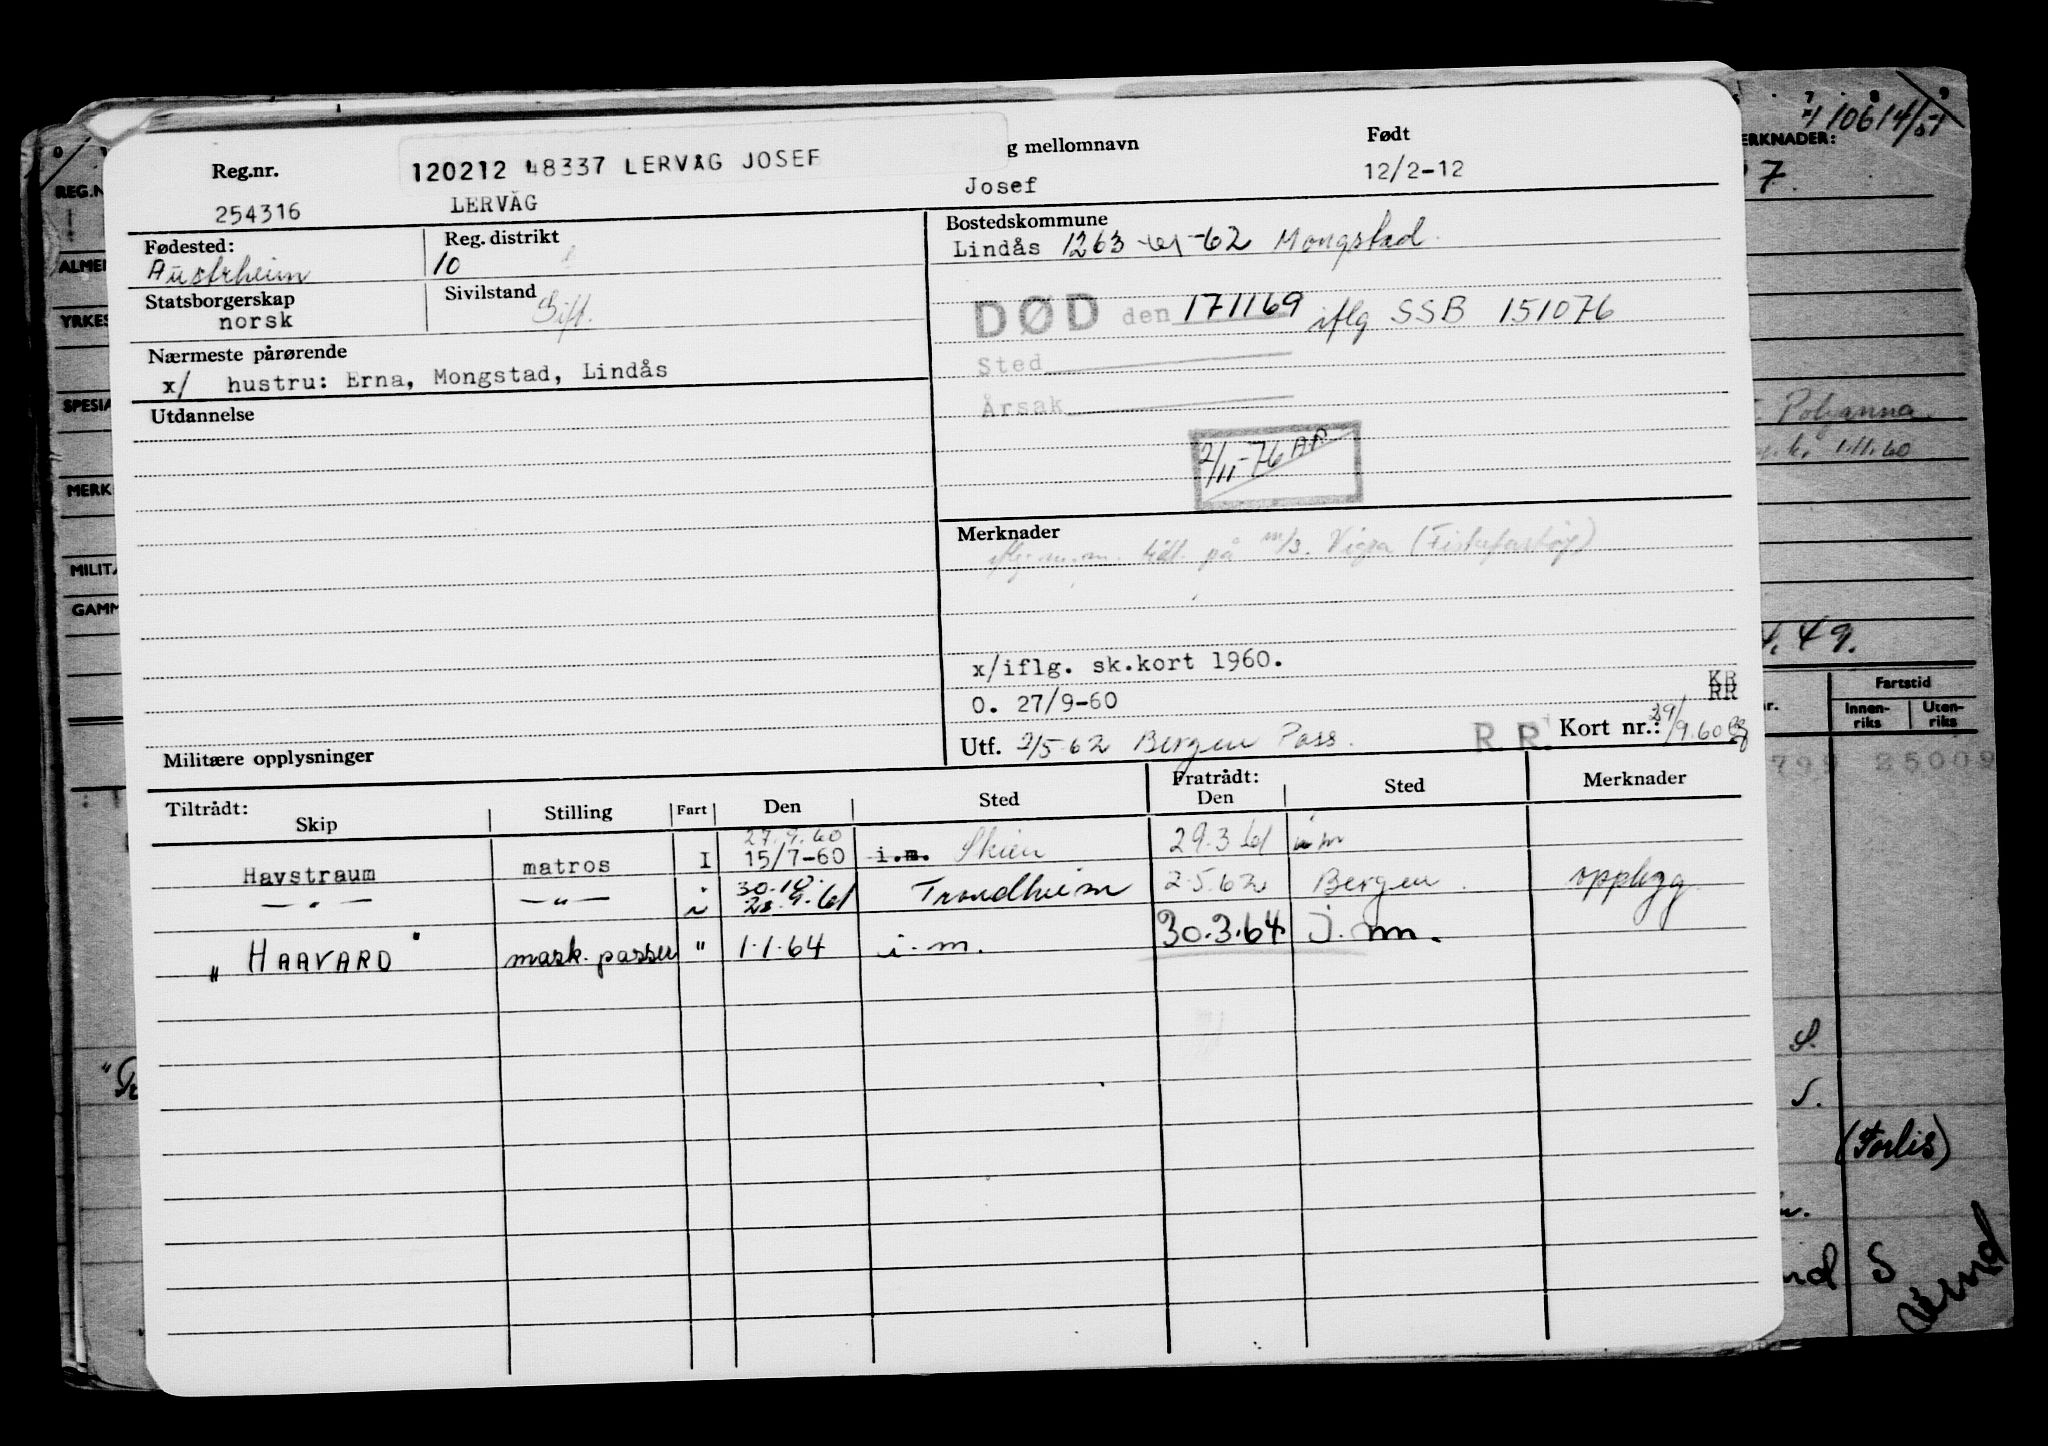 Reg.nr.
120212 48337 LERVÅG JOSEF
g mellomnavn
Født
254316
LERVÅG
Josef
12/2-12
Fødested:
Austrheim
Reg. distrikt
10
Bostedskommune
Lindås 1263 -62 Mongstad
Statsborgerskap
norsk
Sivilstand
Gift.
DØD den 171169 iflg SSB 151076
Sted
Årsak
Nærmeste pårørende
x/ hustru: Erna, Mongstad, Lindås
Utdannelse
2/11-76 AP
Merknader
på m/s. Vigra
x/iflg. sk.kort 1960.
O. 27/9-60
KR
RR
Utf. 2/5-62 Bergen Pass.
R R
Kort nr.: 29/9.60
Militære opplysninger
Tiltrådt:
Skip
Stilling
Fart
Den
Sted
Fratrådt:
Den
Sted
Merknader
27.9.60
Havstraum matros I 15/7-60 i.m. Skien 29.3.61 i m
30.10.
— " — — " — 28.9.61 Trondheim 2.5.62 Bergen opplegg
" HAAVARD " mask.passer " 1.1.64 i.m. 30.3.64 i.m.
110614/51
ERKNADER:
7.
REG.N
ALMEN
YRKES
SPESIA
MERK
MILITÆ
GAMM
Polyanna
1.11.60
4.49.
Fartstid
Innen-
riks
Uten-
riks
799 25009
S.
S.
(Forlis)
nd S